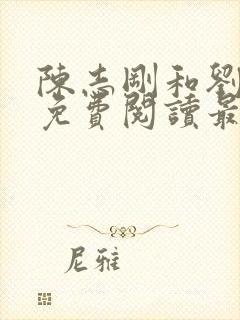 陳志剛和劉
免費閱讀最
尼雅